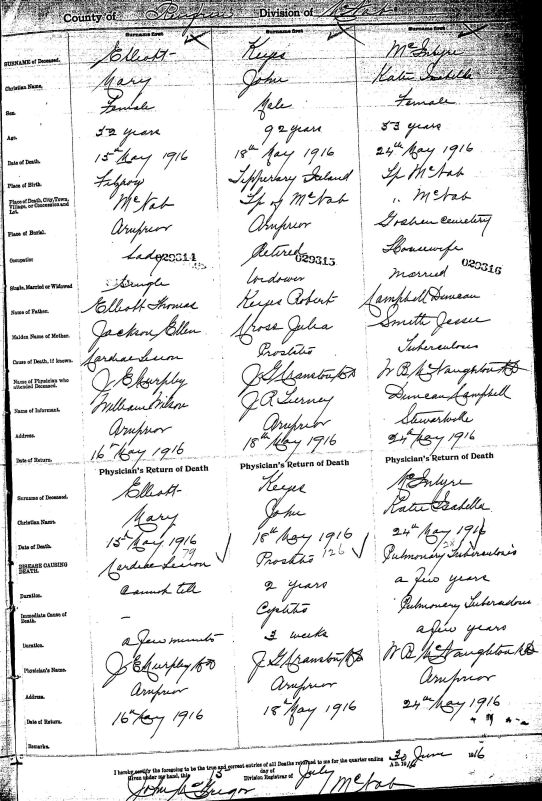 County of Renfrew Division of McNab
Surname first Surname first Surname first
SURNAME of Deceased. Elliott Keyes McIntyre
Christian Name. Mary John Katie Isabella
Sex. Female Male Female
Age. 52 years 92 years 53 years
Date of Death. 15th May 1916 18th May 1916 24th May 1916
Place of Birth. Fitzroy Tipperary Ireland Tp McNab
Place of Death, City, Town, Village, or Concession and Lot. McNab Tp of McNab " McNab
Place of Burial. Arnprior Arnprior Goshen Cemetery
Occupation Lady 029314 Retired 029315 Housewife 029316
Single, Married or Widowed Single Widower Married
Name of Father. Elliott Thomas Keyes Robert Campbell Duncan
Maiden Name of Mother. Jackson Ellen Cross Julia Smith Jessie
Cause of Death, if known. Cardiac Lesion Prostatis Tuberculosis
Name of Physician who attended Deceased. J E Murphy J G Cranston MD W B McNaughton MD
Name of Informant. William Wilson J R Tierney Duncan Campbell
Address. Arnprior Arnprior Stewartville
Date of Return. 16th May 1916 18th May 1916 24th May 1916
Physician's Return of Death Physician's Return of Death Physician's Return of Death
Surname of Deceased. Elliott Keyes McIntyre
Christian Name. Mary John Katie Isabella
Date of Death. 15th May 1916 18th May 1916 24th May 1916
DISEASE CAUSING DEATH. Cardiac Lesion 79 Prostatis 126 Pulmonary Tuberculosis
Duration. Cannot tell 2 years a few years
Immediate Cause of Death. – Cystitis Pulmonary Tuberculosis
Duration. a few minutes 3 weeks a few years
Physician's Name. J E Murphy MD J G Cranston MD W B McNaughton MD
Address. Arnprior Arnprior Arnprior
Date of Return. 16th May 1916 18th May 1916 24th May 1916
Remarks.
I hereby certify the foregoing to be the true and correct entries of all Deaths returned to me for the quarter ending 30 June A.D. 1916
Given under my hand, this 5 day of July
John McGregor Division Registrar of McNab